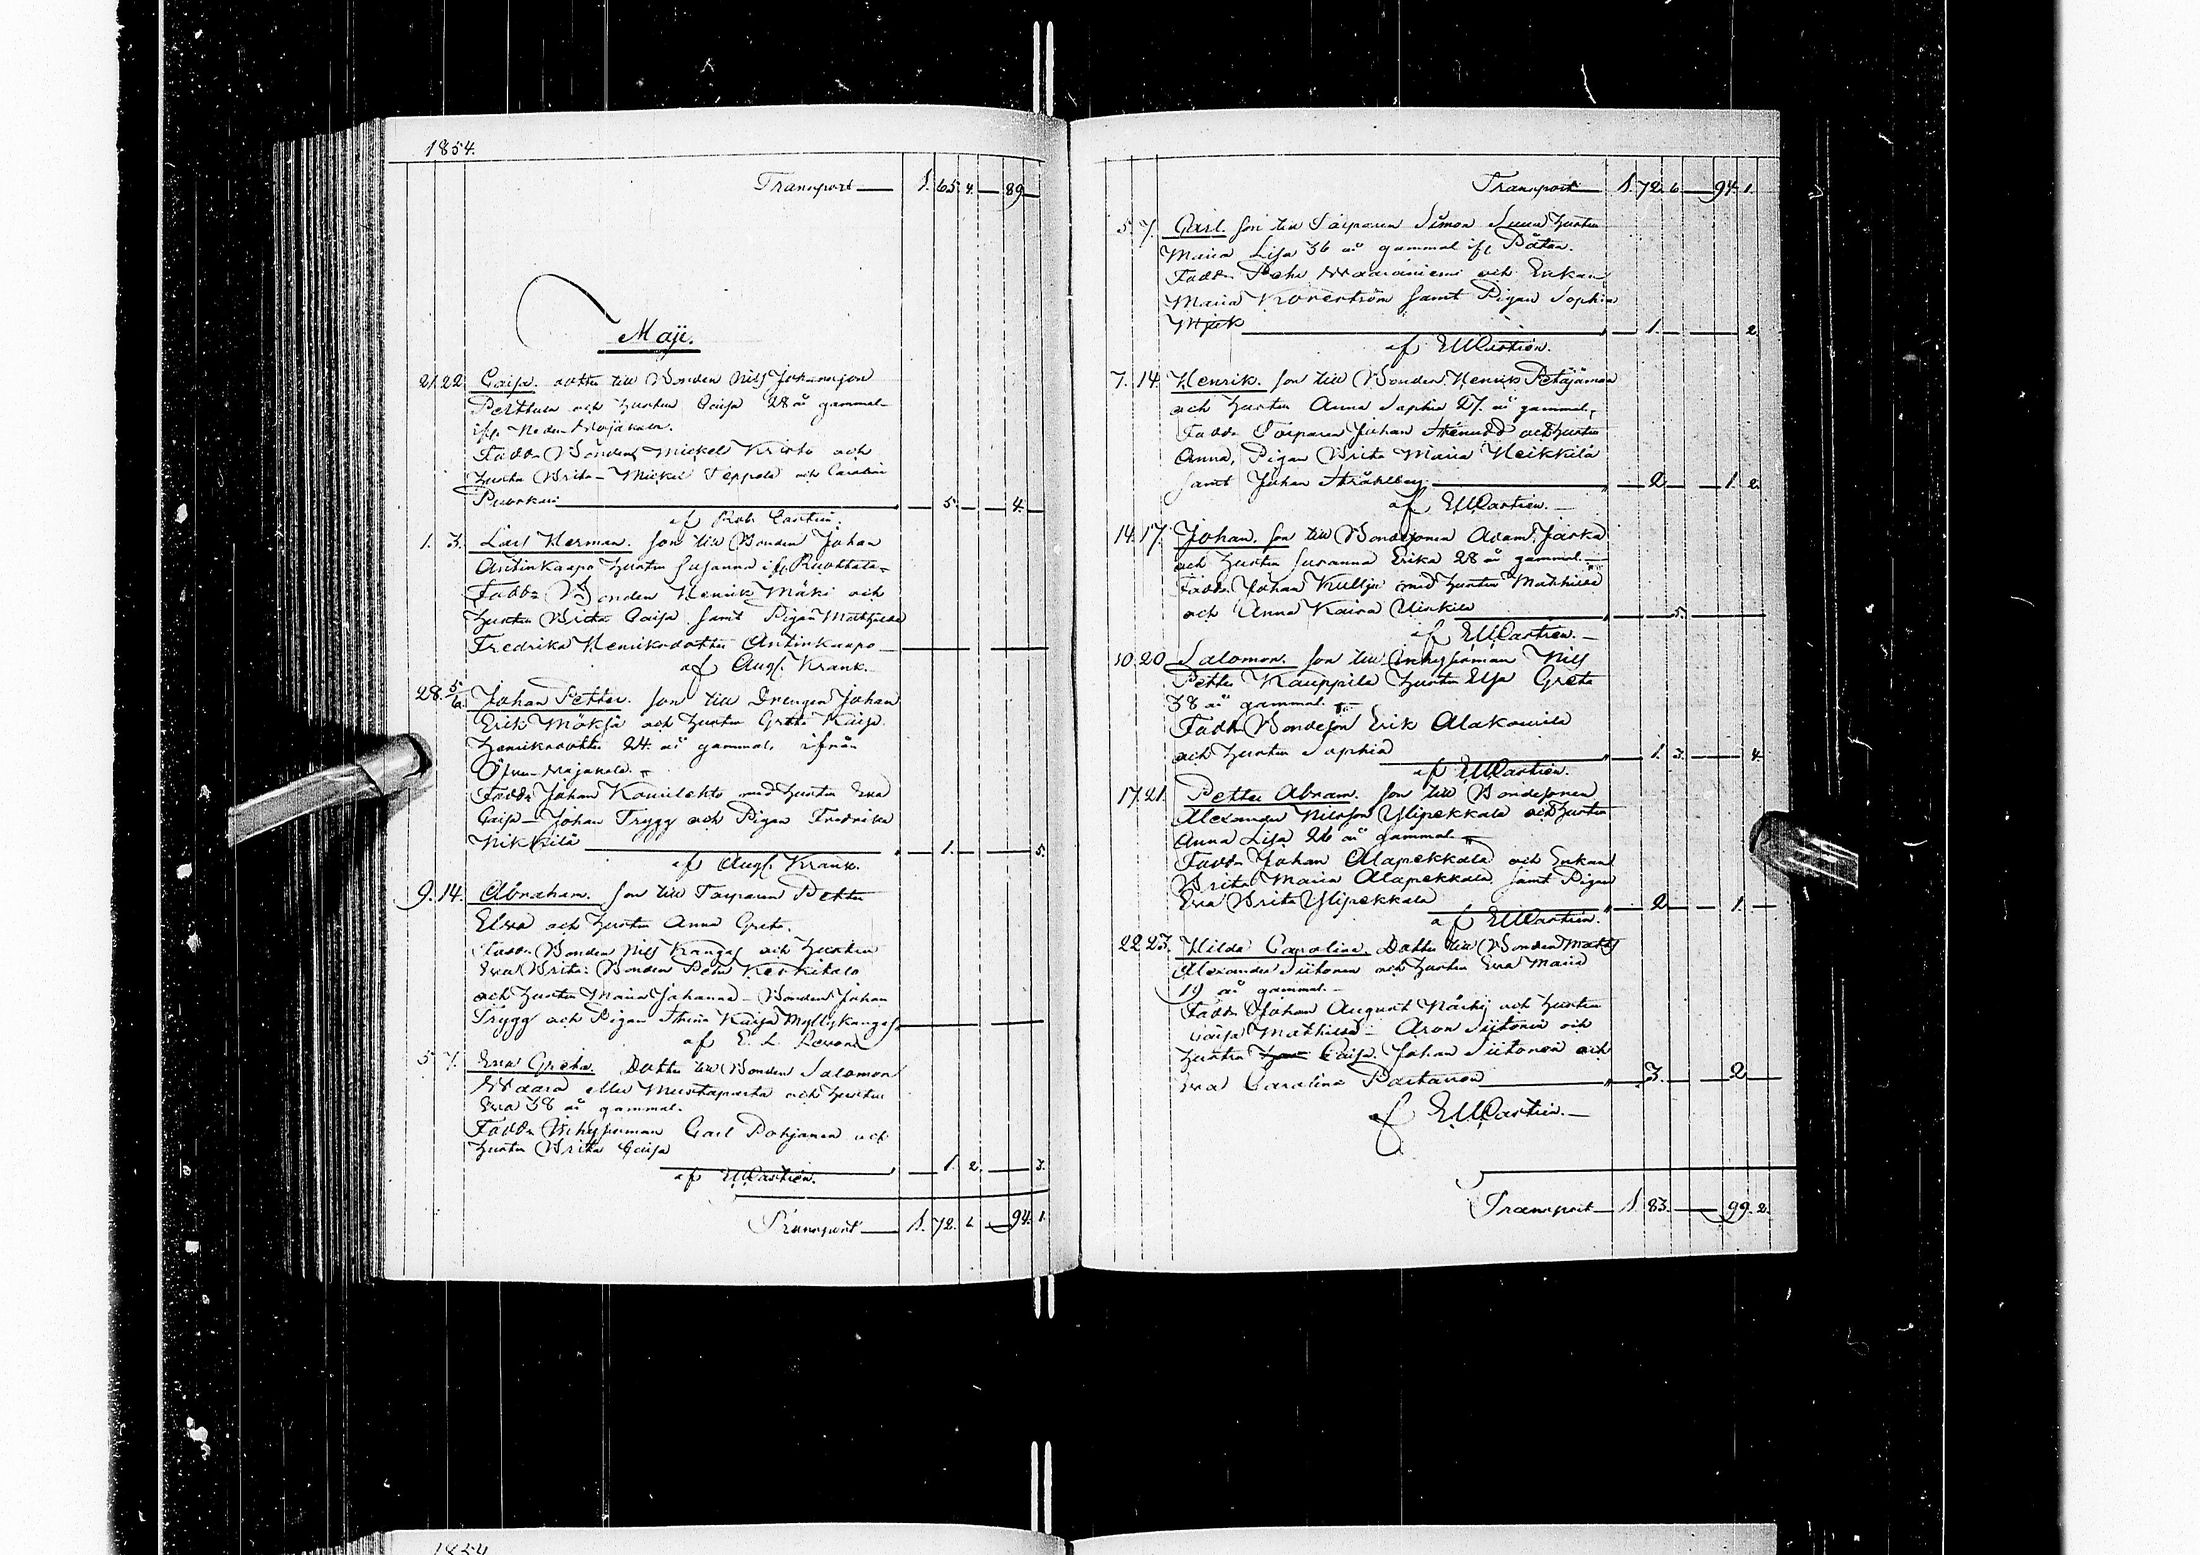 1854.
Transport — 1. 65. 4. — 89 —
Maji.
21. 22. Caisa. dotter till Bonden Nils Johansson
Perttula och hustru Caisa 28 år gammal
ifr. Neder
Fadd. Bonden Mickel Kristo och
hustru Brita – Mickel Seppälä och Carolina
— 5. — 4. —
af Rob. Castrén.
1. 3. Carl Herman. son till Bonden Johan
Antinkaapo hustru Susanna ifr. Ruottala
Fadd. Bonden Henrik Mäki och
hustru Brita Caisa samt Pigan Mathilda
Fredrika Henriksdotter Antinkaapo
af Aug. Krank.
28. 5/6 Johan Petter. son till Drengen Johan
Erik och hustru Greta Kaisa
Henriksdotter 24 år gammal, ifrån
Öfver
Fadd. Johan Kouvilehto med hustru Eva
Caisa – Johan Trygg och Pigan Fredrika
Nikkilä — 1. — 5.
af Aug. Krank.
9. 14. Abraham. son till Torparen Petter
Elva och hustru Anna Greta.
Fadd. Bonden Nils Kangas och hustru
Eva Brita: Bonden Petter Keskitalo
och hustru Maria Johanna – Bonden Johan
Trygg och Pigan Stina Kaisa Myllykangas
af E. L.
5. 7. Eva Greta. Dotter till Bonden Salomon
Waara eller Mustaparta och hustru
Eva 38 år gammal.
Fadd. Inhysesman Carl Pohjanen och
hustru Brita Caisa
— 1. 2. — 3.
af E W Castrén.
Transport — 1. 72. 6. — 94. 1.
Transport — 1. 72. 6. — 94. 1.
5. 7. Carl. son till Torparen Simon hustru
Maria Lisa 36 år gammal ifr.
Fadd. Pehr Waaraniemi och Enkan
Maria samt Pigan Sophia
— 1. — 2.
af E W Castrén.
7. 14. Henrik. son till Bonden Henrik Petäjämaa
och hustru Anna Sophia 27. år gammal.
Fadd. Torparen Johan Stenudd och hustru
Anna, Pigan Brita Maria Heikkilä
samt Johan Stråhlberg — 2 — 1. 2.
af E W Castrén.
14. 17. Johan. son till Bondesonen Adam Jaska
och hustru Susanna Erika 28 år gammal.
Fadd. Johan Kullju med hustru Mathilda
och Anna Kaisa — 5. —
af E W Castrén.
10. 20. Salomon. son till Inhysesman Nils
Petter Kauppila hustru Elsa Greta
38 år gammal.
Fadd. Bondeson Erik Alakouvila
och hustru Sophia — 1. 3. — 4.
af E W Castrén.
17. 21. Petter Abram. son till Bondesonen
Alexander Nilsson Ylipekkala och hustru
Anna Lisa 26 år gammal.
Fadd. Johan Alapekkala och Enkan
Brita Maria Alapekkala samt Pigan
Eva Brita Ylipekkala — 2 — 1. —
af E W Castrén.
22. 23. Hilda Carolina. Dotter till Bonden Matts
Alexander Siitonen och hustru Eva Maria
19 år gammal.
Fadd. Johan August Närhi och hustru
Caisa Mathilda – Aron Siitonen och
hustru Caisa. Johan Siitonen och
Eva Carolina Partanen — 3. — 2 —
af E W Castrén.
Transport — 1. 83. — 99. 2.
1854